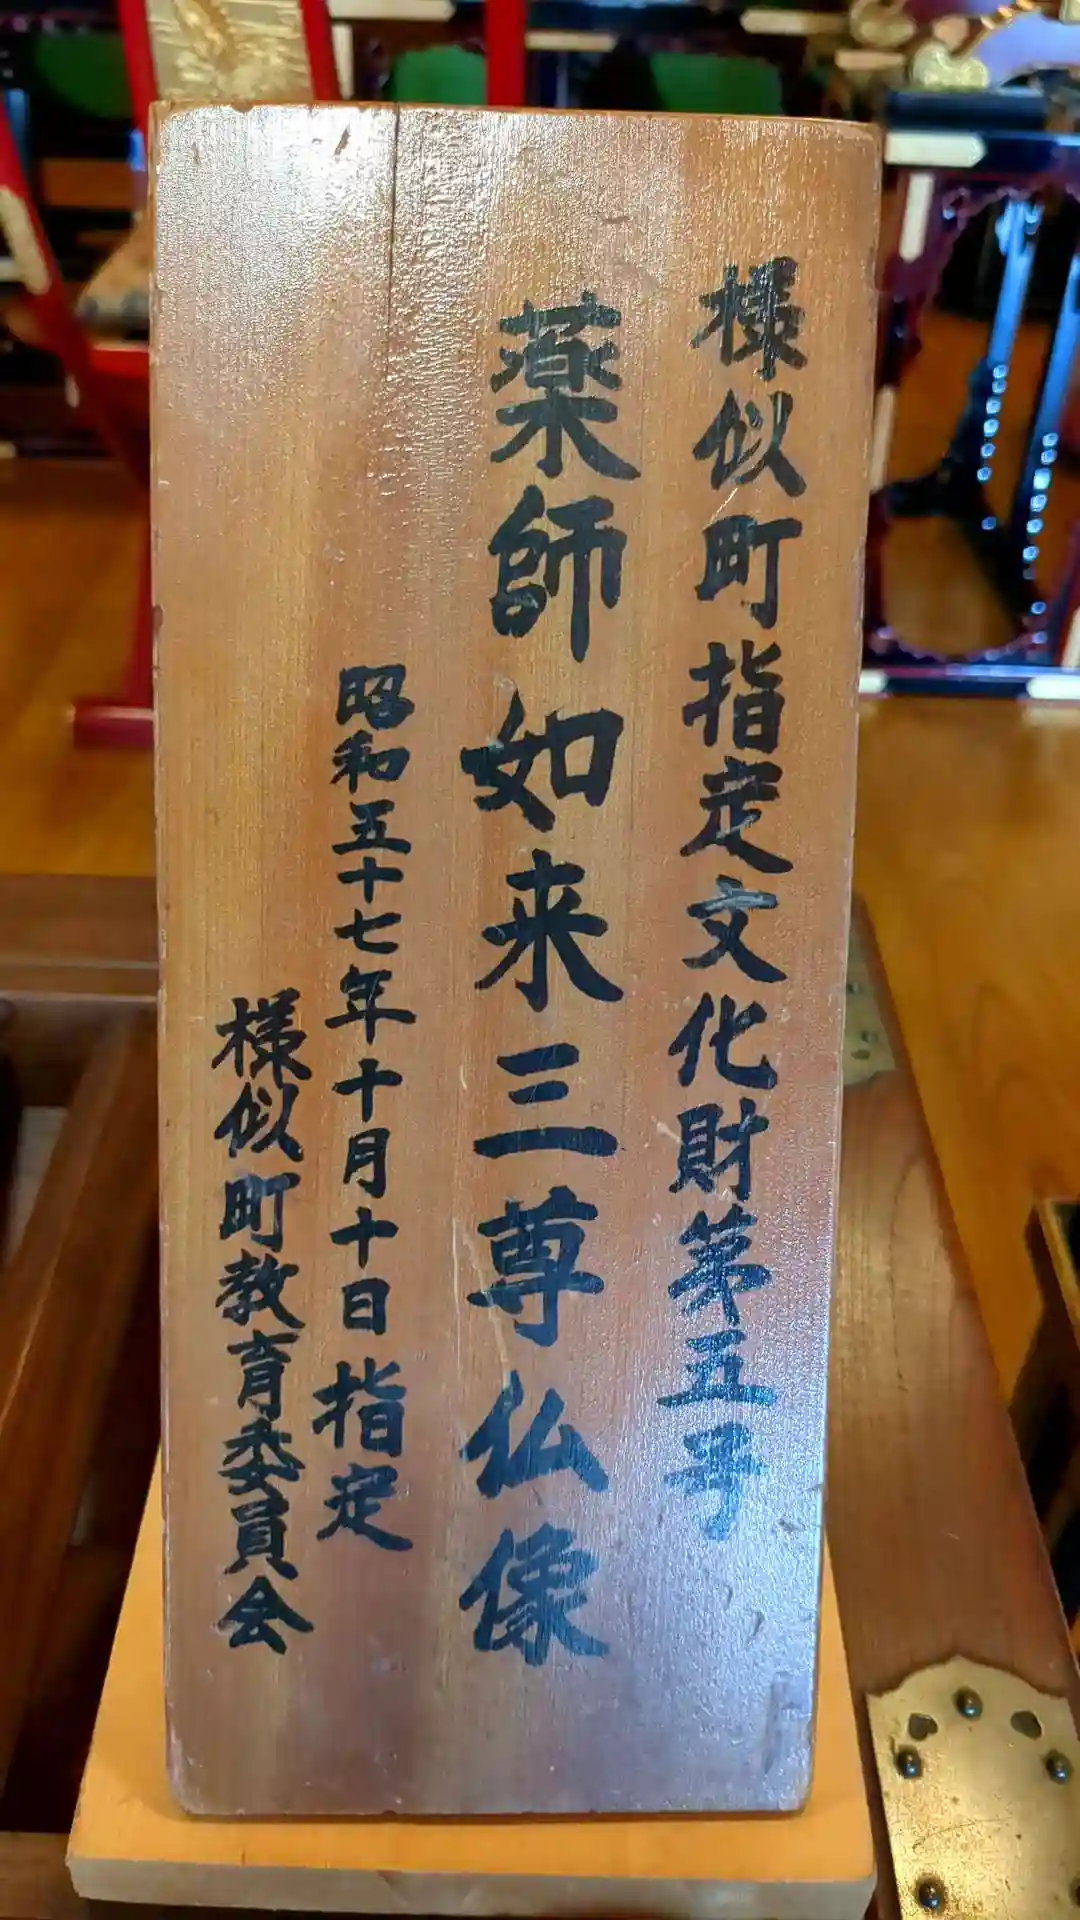 様似町指定文化財第五号
薬師如来三尊仏像
昭和五十七年十月十日指定
様似町教育委員会